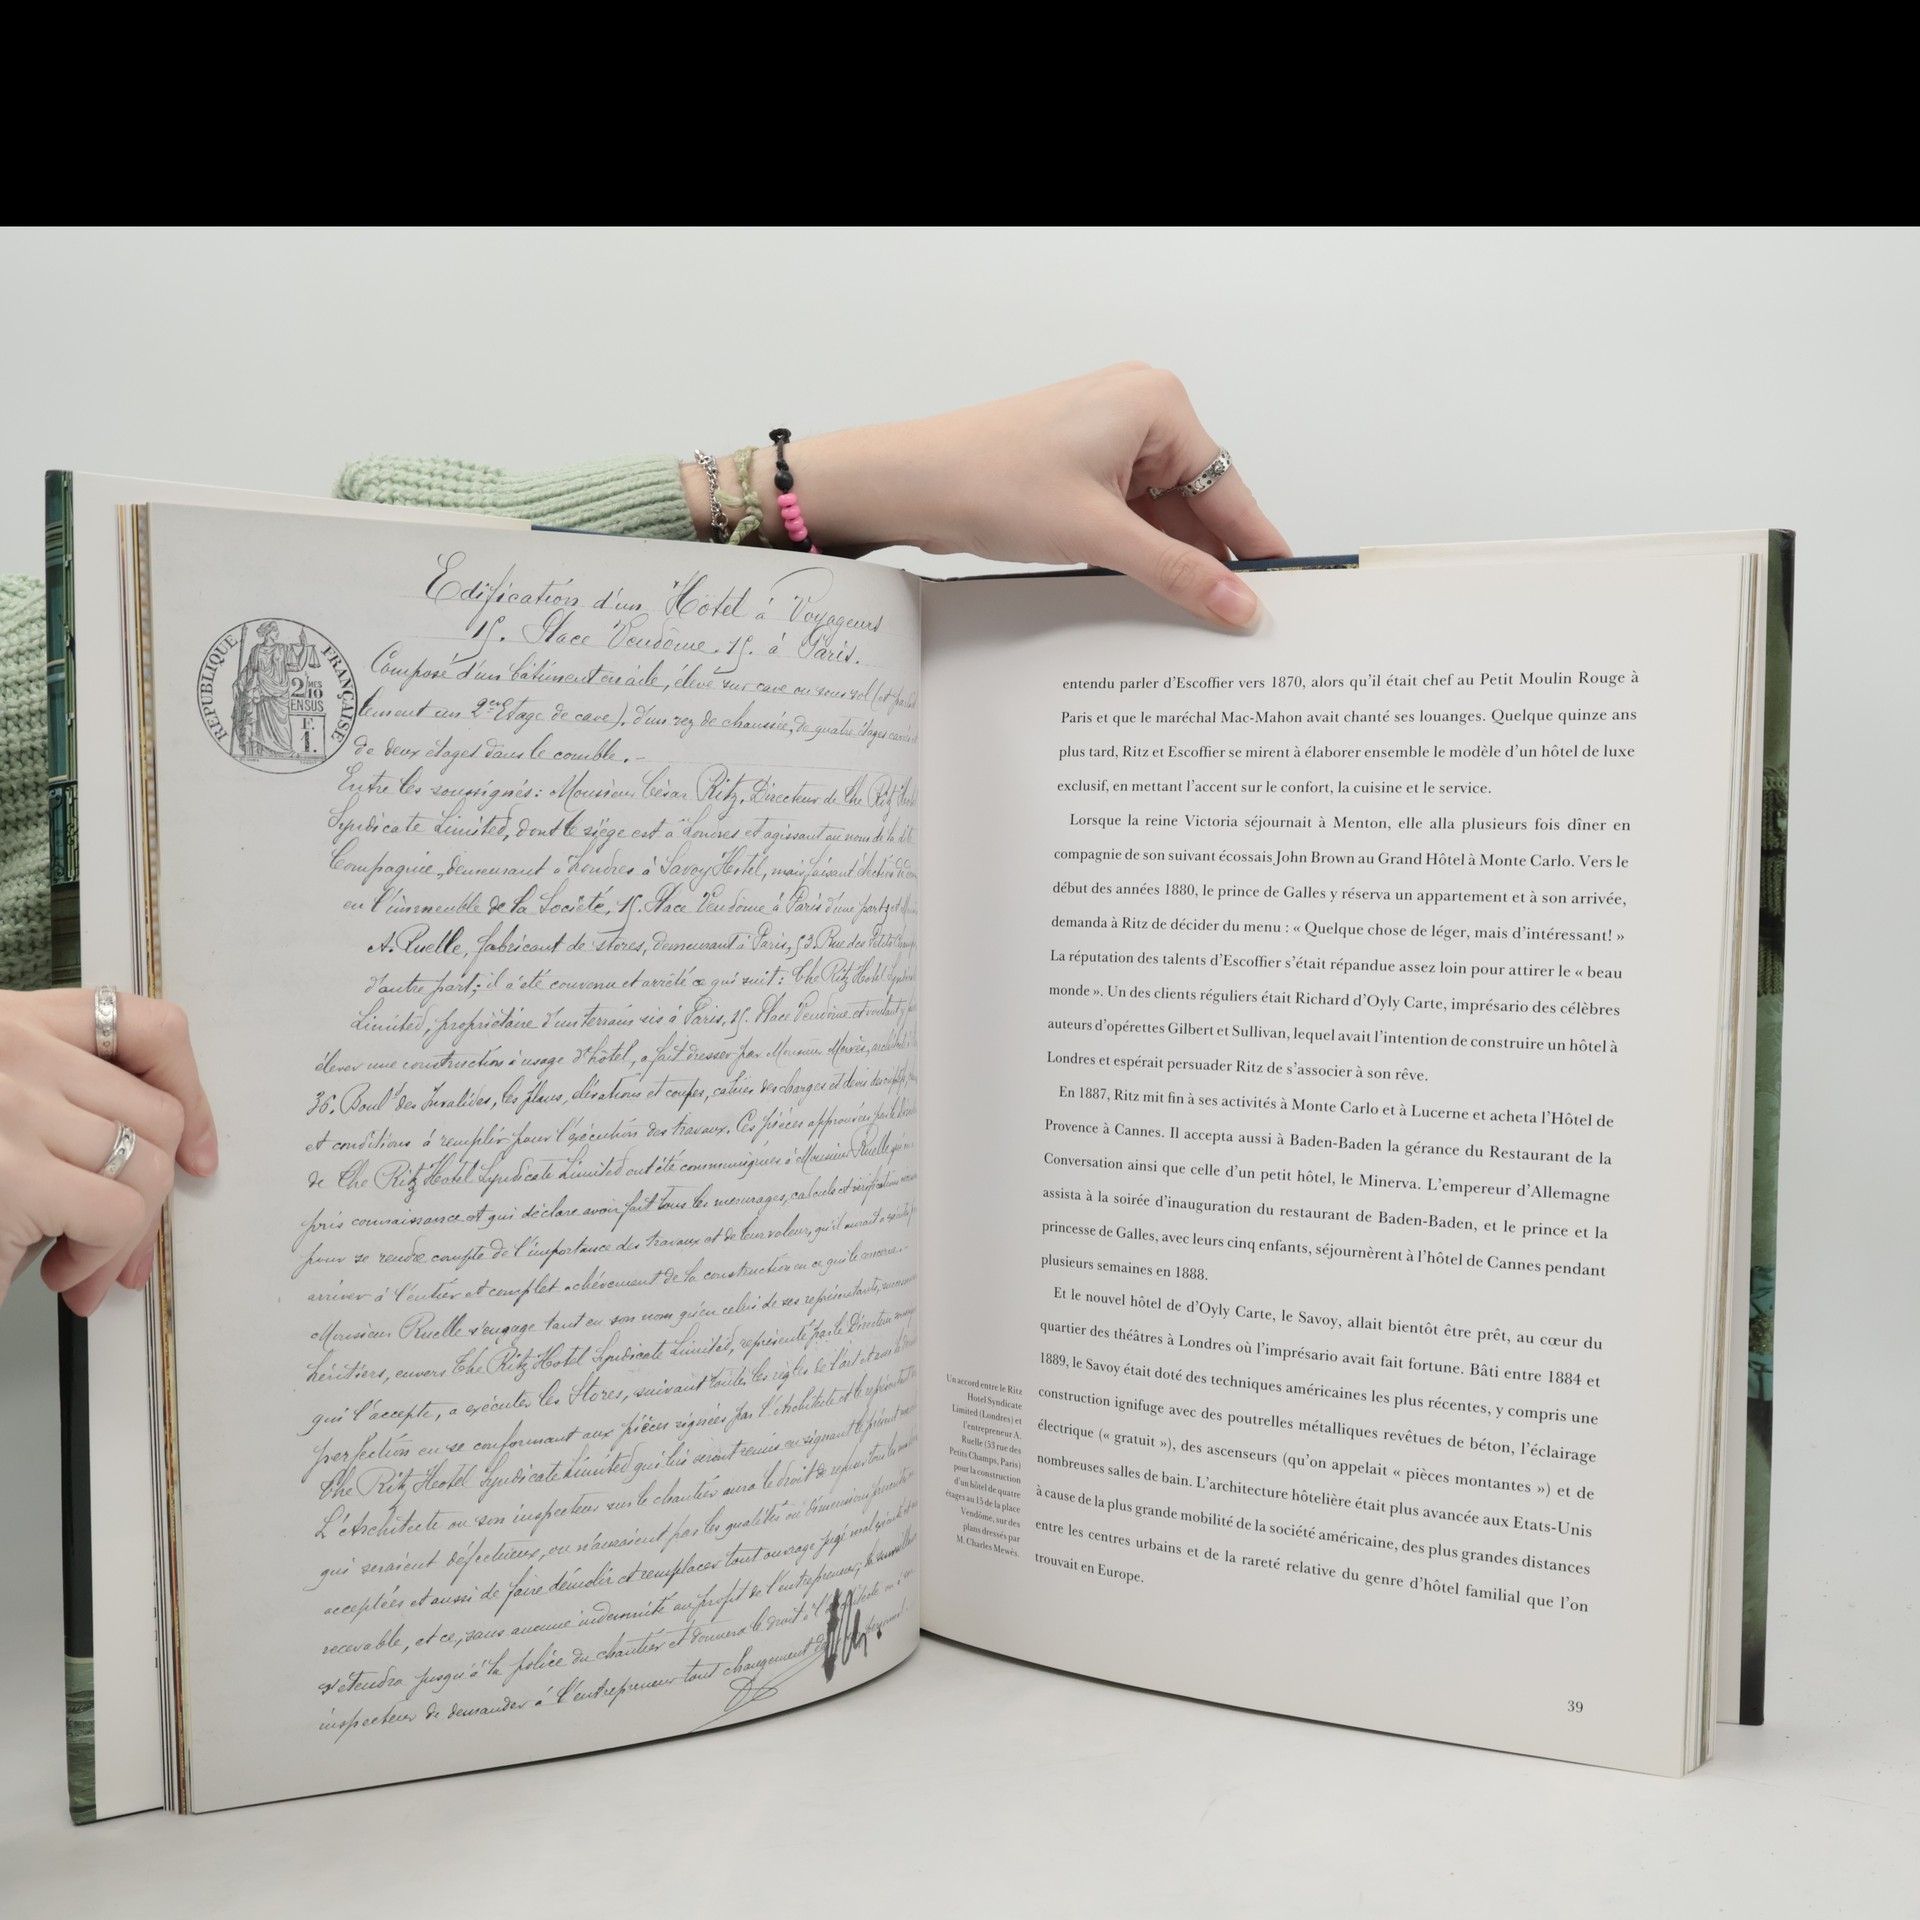 Edification d'un Hôtel à Voyageurs
15. Place Vendôme. 15. à Paris.
RÉPUBLIQUE FRANÇAISE
2/10
EN SUS
F.
1.
Composé d'un bâtiment en aile, élevé sur cave ou sous sol (et
2e Etage de cave), d'un rez de chaussée, de quatre étages carrés
de deux étages dans le comble.
Entre les soussignés: Monsieur César Ritz, Directeur de The Ritz Hotel
Syndicate Limited, dont le siège est à Londres et agissant au nom de la dite
Compagnie, demeurant à Londres à Savoy Hotel, mais faisant élection de
en l'immeuble de la Société, 15. Place Vendôme à Paris d'une part; et
A. Ruelle, fabricant de stores, demeurant à Paris, 53. Rue des Petits Champs
d'autre part; il a été convenu et arrêté ce qui suit: The Ritz Hotel Syndicate
Limited, propriétaire d'un terrain sis à Paris, 15. Place Vendôme et voulant y
élever une construction à usage d'hôtel, a fait dresser par Monsieur Mewès, architecte
36. Boul.d des Invalides, les plans, élévations et coupes, cahier des charges et devis descriptif,
et conditions à remplir pour l'exécution des travaux. Ces pièces approuvées par le
de The Ritz Hôtel Syndicate Limited ont été communiquées à Monsieur Ruelle qui en
pris connaissance et qui déclare avoir fait tous les mesurages, calculs et vérifications
pour se rendre compte de l'importance des travaux et de leur valeur, qu'il aurait à exécuter pour
arriver à l'entier et complet achèvement de la construction en ce qui le concerne.-
Monsieur Ruelle s'engage tant en son nom qu'en celui de ses représentants, successeurs
héritiers, envers The Ritz Hotel Syndicate Limited, représenté par le Directeur
qui l'accepte, a exécuter les Stores, suivant toutes les règles de l'art et
perfection en se conformant aux pièces signées par l'Architecte et le représentant
The Ritz Hotel Syndicate Limited qui lui seront remis en signant le présent
L'Architecte ou son inspecteur sur le chantier aura le droit de refuser tous les
qui seraient défectueux, ou n'auraient pas les qualités ou dimensions
acceptées et aussi de faire démolir et remplacer tout ouvrage jugé mal exécuté et
recevable, et ce, sans aucune indemnité au profit de l'entrepreneur, la surveillance
s'étendra jusqu'à la police du chantier et donnera le droit à l'Architecte ou à son
inspecteur de demander à l'entrepreneur tout changement de personnel.
entendu parler d'Escoffier vers 1870, alors qu'il était chef au Petit Moulin Rouge à
Paris et que le maréchal Mac-Mahon avait chanté ses louanges. Quelque quinze ans
plus tard, Ritz et Escoffier se mirent à élaborer ensemble le modèle d'un hôtel de luxe
exclusif, en mettant l'accent sur le confort, la cuisine et le service.
Lorsque la reine Victoria séjournait à Menton, elle alla plusieurs fois dîner en
compagnie de son suivant écossais John Brown au Grand Hôtel à Monte Carlo. Vers le
début des années 1880, le prince de Galles y réserva un appartement et à son arrivée,
demanda à Ritz de décider du menu : « Quelque chose de léger, mais d'intéressant! »
La réputation des talents d'Escoffier s'était répandue assez loin pour attirer le « beau
monde ». Un des clients réguliers était Richard d'Oyly Carte, imprésario des célèbres
auteurs d'opérettes Gilbert et Sullivan, lequel avait l'intention de construire un hôtel à
Londres et espérait persuader Ritz de s'associer à son rêve.
En 1887, Ritz mit fin à ses activités à Monte Carlo et à Lucerne et acheta l'Hôtel de
Provence à Cannes. Il accepta aussi à Baden-Baden la gérance du Restaurant de la
Conversation ainsi que celle d'un petit hôtel, le Minerva. L'empereur d'Allemagne
assista à la soirée d'inauguration du restaurant de Baden-Baden, et le prince et la
princesse de Galles, avec leurs cinq enfants, séjournèrent à l'hôtel de Cannes pendant
plusieurs semaines en 1888.
Et le nouvel hôtel de d'Oyly Carte, le Savoy, allait bientôt être prêt, au cœur du
quartier des théâtres à Londres où l'imprésario avait fait fortune. Bâti entre 1884 et
1889, le Savoy était doté des techniques américaines les plus récentes, y compris une
construction ignifuge avec des poutrelles métalliques revêtues de béton, l'éclairage
électrique (« gratuit »), des ascenseurs (qu'on appelait « pièces montantes ») et de
nombreuses salles de bain. L'architecture hôtelière était plus avancée aux Etats-Unis
à cause de la plus grande mobilité de la société américaine, des plus grandes distances
entre les centres urbains et de la rareté relative du genre d'hôtel familial que l'on
trouvait en Europe.
Un accord entre le Ritz
Hotel Syndicate
Limited (Londres) et
l'entrepreneur A.
Ruelle (53 rue des
Petits Champs, Paris)
pour la construction
d'un hôtel de quatre
étages au 15 de la place
Vendôme, sur des
plans dressés par
M. Charles Mewès.
39